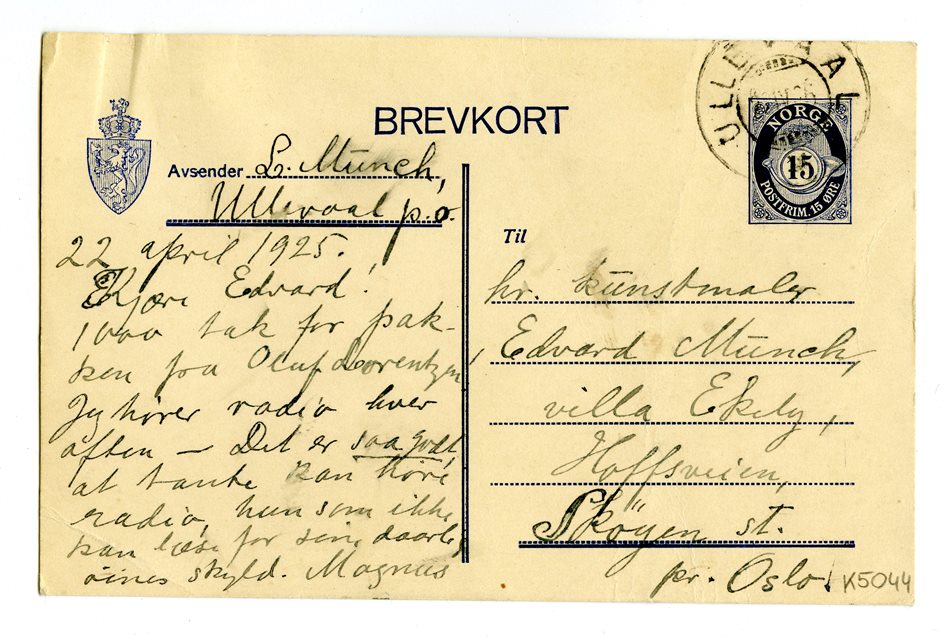 BREVKORT
Avsender L. Munch,
Ullevaal p.o.
22 april 1925.
Kjære Edvard!
1000 tak for pak-
ken fra Oluf Lorentzen,
Jeg hører radio hver
aften – Det er saa godt,
at tante kan høre
radio, hun som ikke
kan læse for sine daarlige
øines skyld. Magnus
ULLEVAAL
NORGE
15
POSTFRIM. 15 ØRE
Til
hr. kunstmaler
Edvard Munch,
villa Ekely,
Hoffsveien,
Sköyen st.
pr. Oslo.
K5044